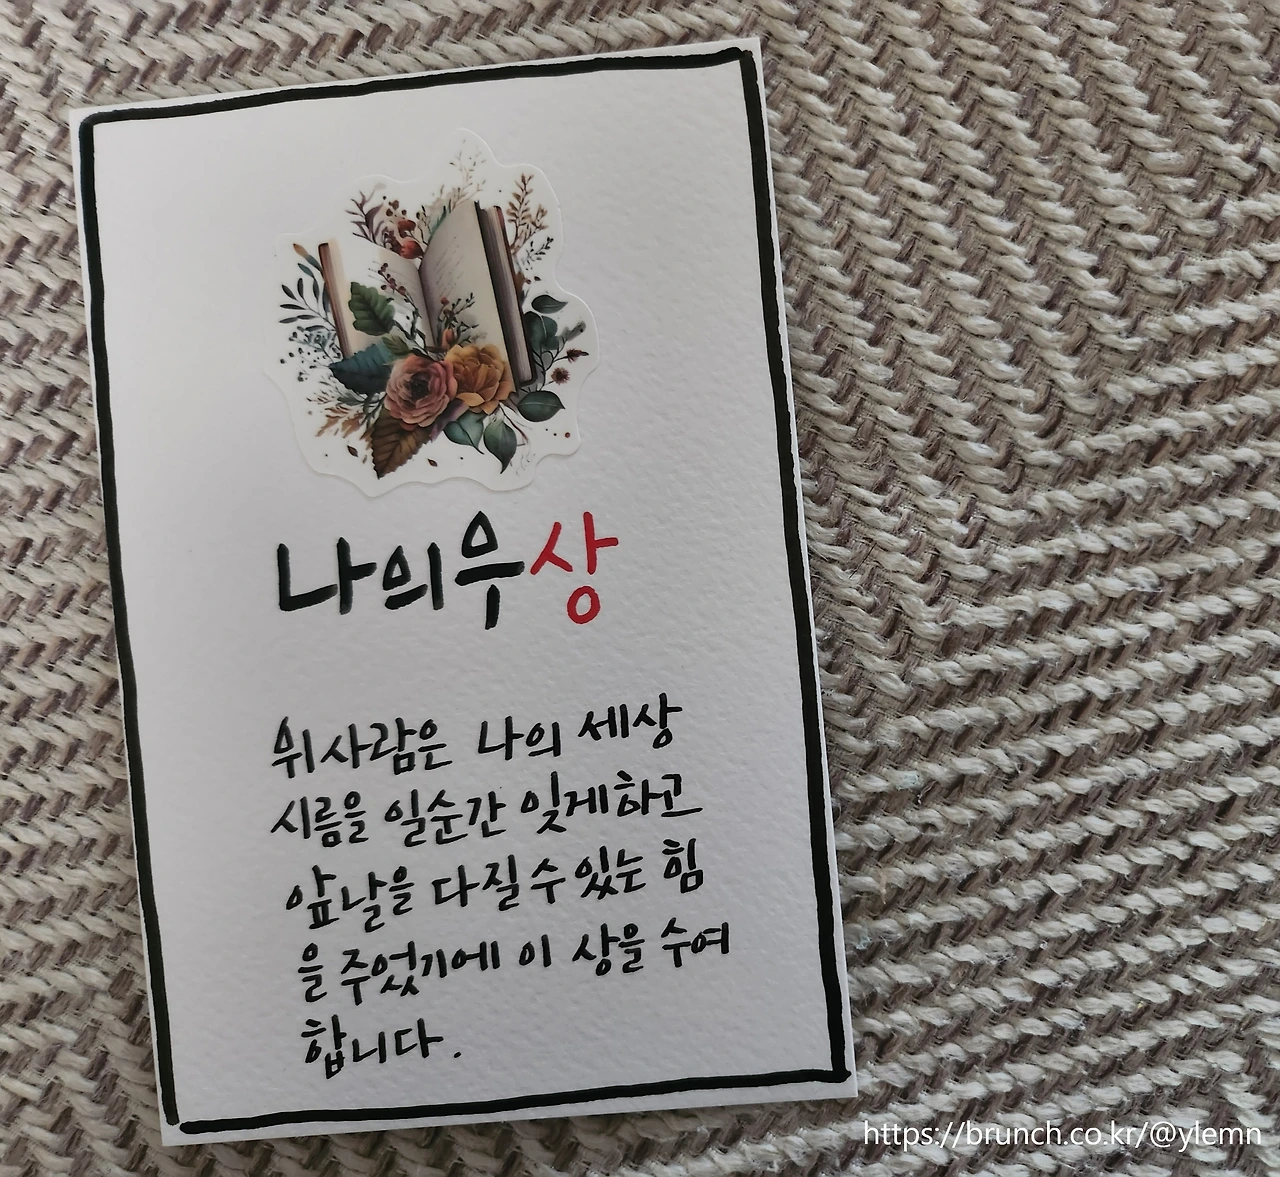 나의우상
위사람은 나의 세상
시름을 일순간 잊게하고
앞날을 다질수있는 힘
을 주었기에 이 상을 수여
합니다.
https://brunch.co.kr/@ylemn